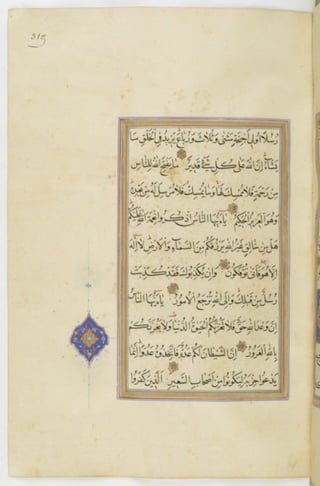 315
رُسُلًا اُولِي اَجْنِحَةٍ مَثْنٰى وَثُلَاثَ وَرُبَاعَ يَزِيدُ فِي الْخَلْقِ مَا
يَشَاءُ اِنَّ اللهَ عَلٰى كُلِّ شَيْءٍ قَدِيرٌ مَا يَفْتَحِ اللهُ لِلنَّاسِ
مِنْ رَحْمَةٍ فَلَا مُمْسِكَ لَهَا وَمَا يُمْسِكْ فَلَا مُرْسِلَ لَهُ مِنْ بَعْدِهِ
وَهُوَ الْعَزِيزُ الْحَكِيمُ يَا اَيُّهَا النَّاسُ اذْكُرُوا نِعْمَةَ اللهِ عَلَيْكُمْ
هَلْ مِنْ خَالِقٍ غَيْرُ اللهِ يَرْزُقُكُمْ مِنَ السَّمَاءِ وَالْاَرْضِ لَا اِلٰهَ
اِلَّا هُوَ فَاَنّٰى تُؤْفَكُونَ وَاِنْ يُكَذِّبُوكَ فَقَدْ كُذِّبَتْ
رُسُلٌ مِنْ قَبْلِكَ وَاِلَى اللهِ تُرْجَعُ الْاُمُورُ يَا اَيُّهَا النَّاسُ
اِنَّ وَعْدَ اللهِ حَقٌّ فَلَا تَغُرَّنَّكُمُ الْحَيٰوةُ الدُّنْيَا وَلَا يَغُرَّنَّكُمْ
بِاللهِ الْغَرُورُ اِنَّ الشَّيْطَانَ لَكُمْ عَدُوٌّ فَاتَّخِذُوهُ عَدُوًّا اِنَّمَا
يَدْعُوا حِزْبَهُ لِيَكُونُوا مِنْ اَصْحَابِ السَّعِيرِ الَّذِينَ كَفَرُوا